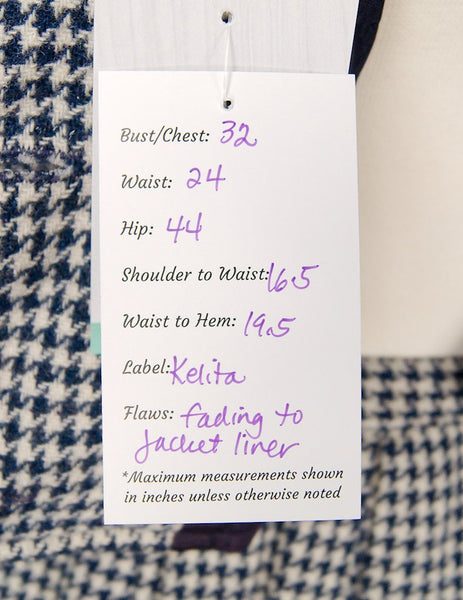 Bust/Chest: 32
Waist: 24
Hip: 44
Shoulder to Waist: 16.5
Waist to Hem: 19.5
Label: Kelita
Flaws: fading to
Jacket liner
*Maximum measurements shown
in inches unless otherwise noted